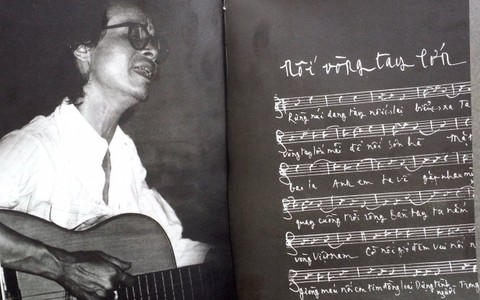 Nối vòng tay lớn
Rừng núi dang tay nối lại biển xa Ta
vòng tay lớn mãi để nối sơn hà Mặt
bao la Anh em ta về gặp nhau
quay cuồng trời rộng Bàn tay ta nắm
vòng Việt Nam Cờ nối gió đêm vui nối
giòng máu nối con tim đồng loại Dựng tình người Trong